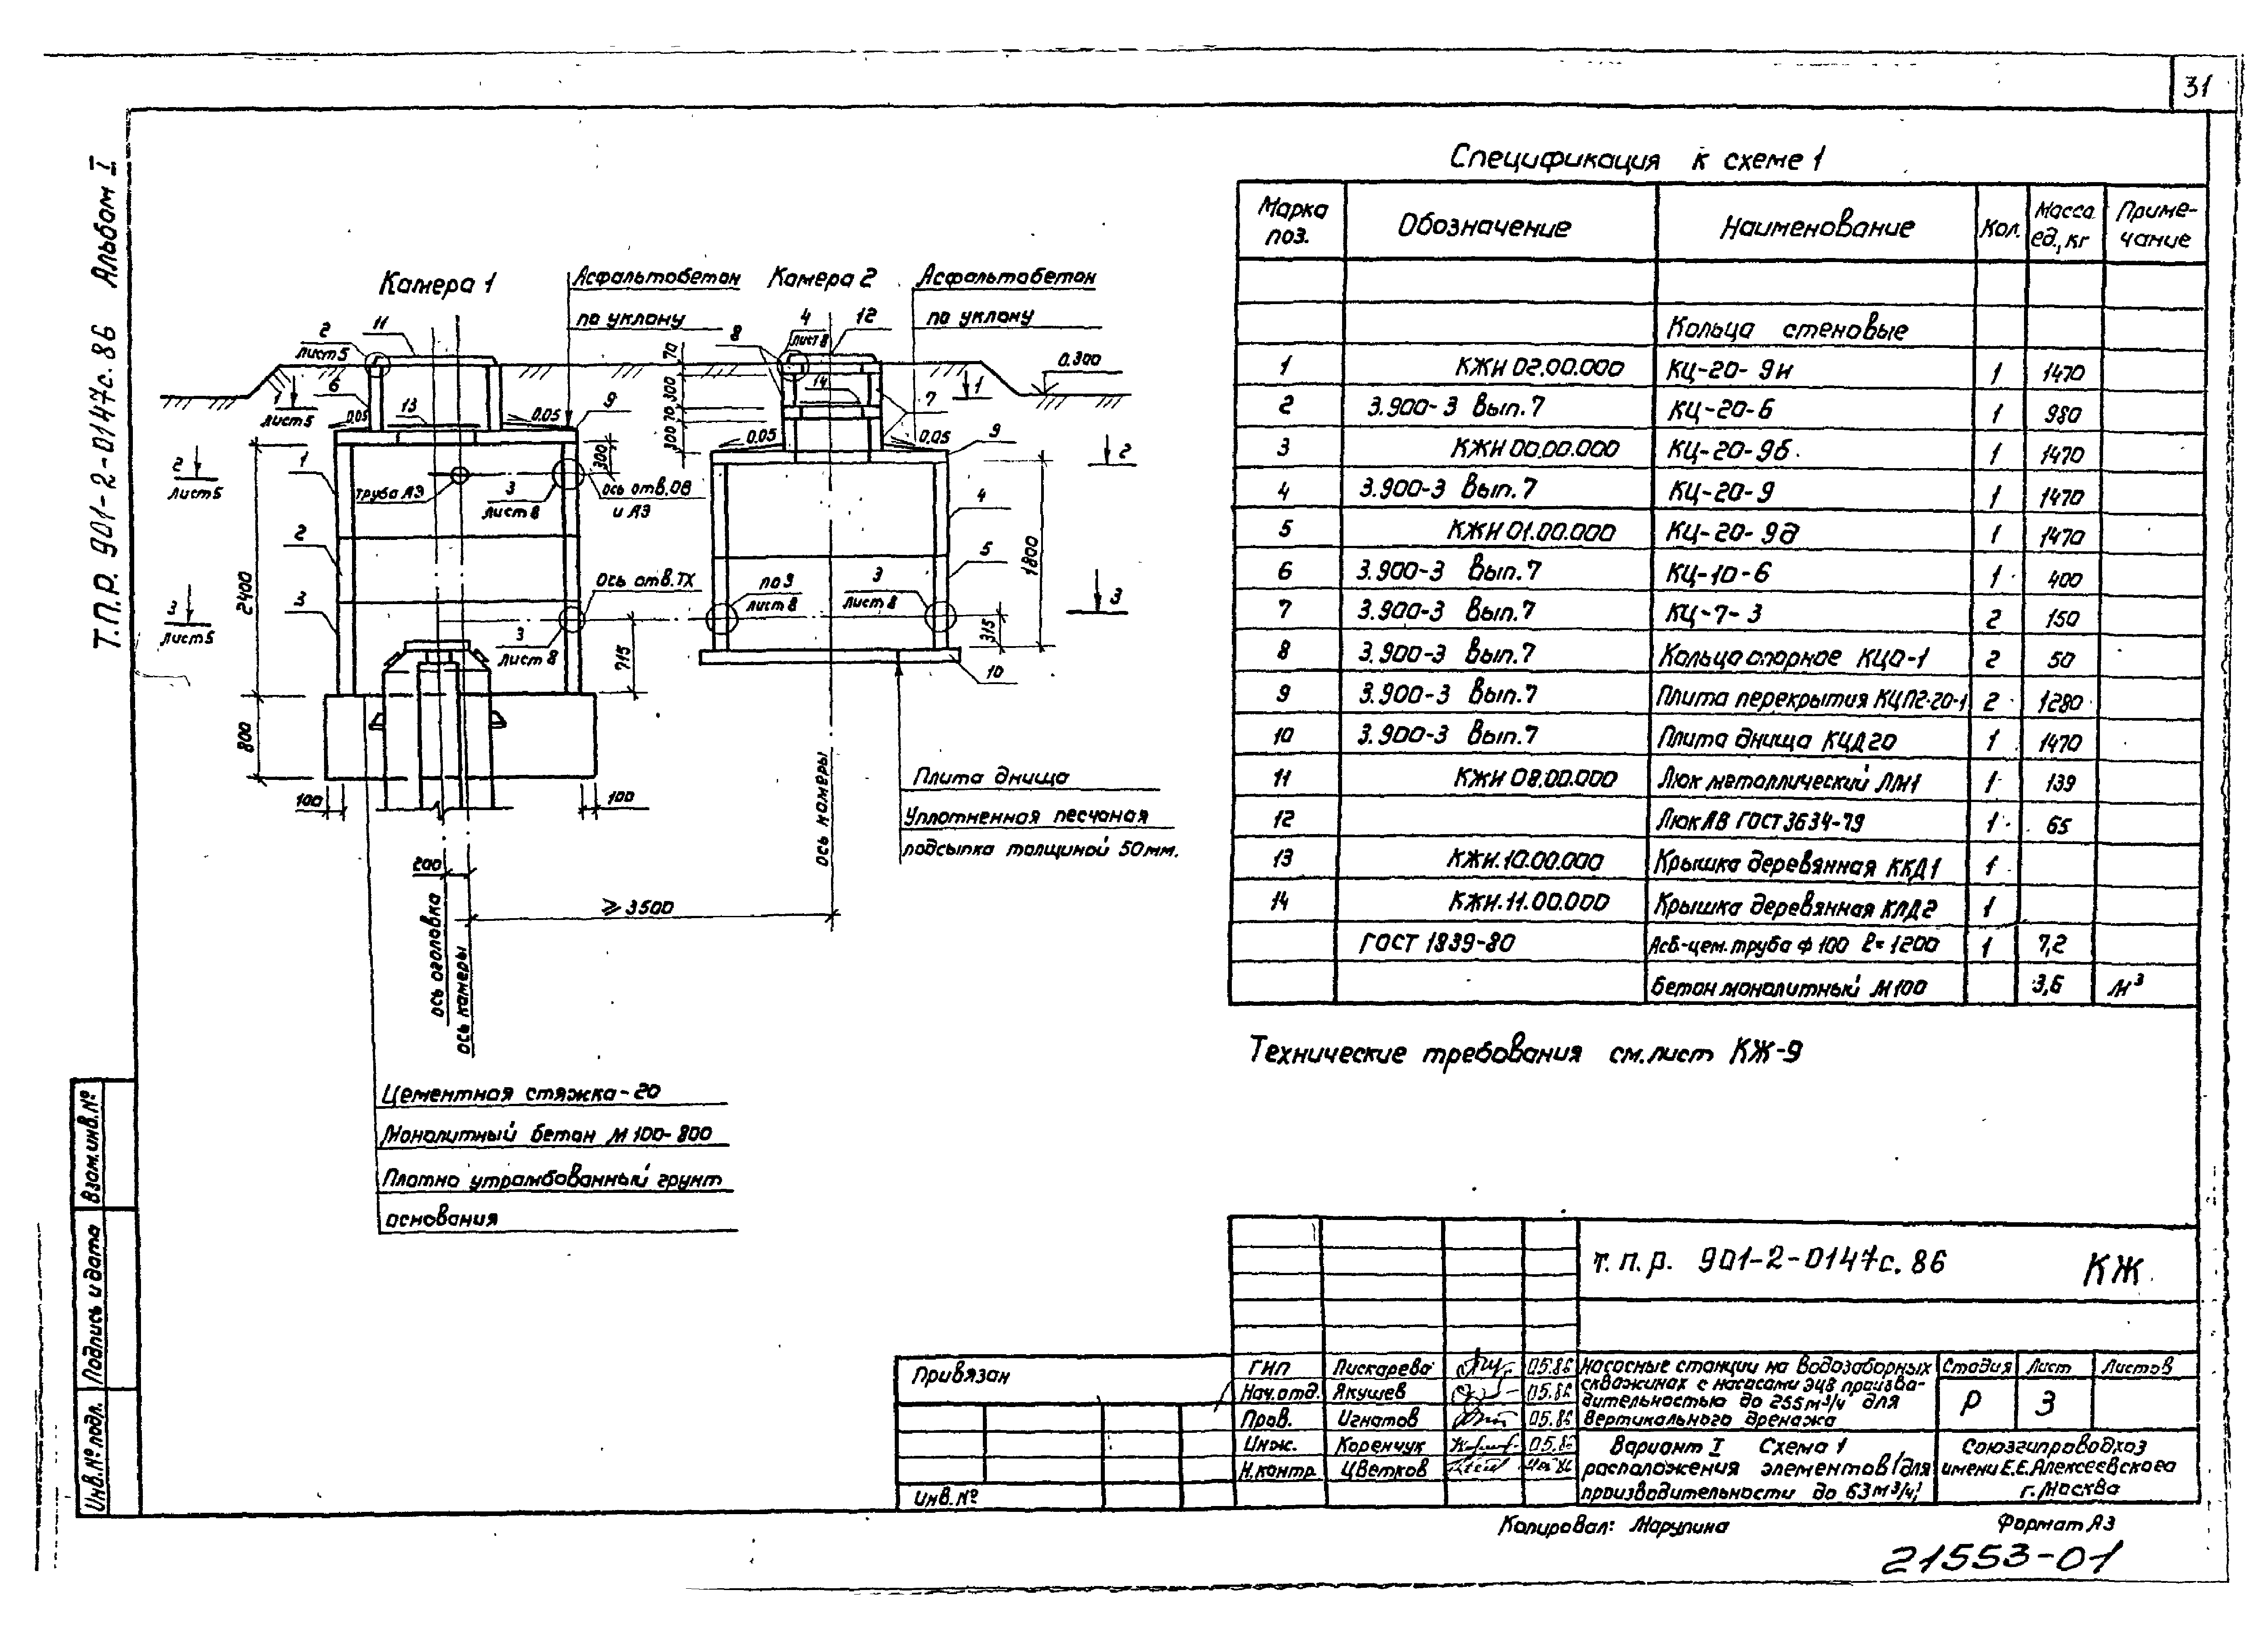 31
Т.П.Р. 901-2-0147с.86 Альбом I
Камера 1
Асфальтобетон
по уклону
Камера 2
Асфальтобетон
по уклону
2
лист 5
11
8
4
лист 8
12
0.300
70
300
70
300
6
1
лист 5
0.05
13
0.05
9
14
7
1
0.05
0.05
9
2
лист 5
1
труба АЭ
3
лист 8
300
ось отв. ОВ
и АЭ
4
2
2
2400
5
1800
3
лист 5
3
Ось отв. ТХ
по 3
лист 8
3
лист 8
3
3
лист 8
715
315
10
800
100
100
Плита днища
Уплотненная песчаная
подсыпка толщиной 50мм.
200
≥3500
ось оголовка
ось камеры
ось камеры
Цементная стяжка-20
Монолитный бетон М 100-800
Плотно утрамбованный грунт
основания
Спецификация к схеме 1
Марка поз. Обозначение Наименование Кол. Масса ед., кг Приме-чание
Кольца стеновые
1 КЖИ 02.00.000 КЦ-20-9и 1 1470
2 3.900-3 Вып.7 КЦ-20-6 1 980
3 КЖИ 00.00.000 КЦ-20-9б 1 1470
4 3.900-3 Вып.7 КЦ-20-9 1 1470
5 КЖИ 01.00.000 КЦ-20-9д 1 1470
6 3.900-3 Вып.7 КЦ-10-6 1 400
7 3.900-3 Вып.7 КЦ-7-3 2 150
8 3.900-3 Вып.7 Кольцо опорное КЦО-1 2 50
9 3.900-3 Вып.7 Плита перекрытия КЦП2-20-1 2 1280
10 3.900-3 Вып.7 Плита днища КЦД20 1 1470
11 КЖИ 08.00.000 Люк металлический ЛМ1 1 139
12 Люк ЛВ ГОСТ 3634-79 1 65
13 КЖИ.10.00.000 Крышка деревянная ККД1 1
14 КЖИ.11.00.000 Крышка деревянная КЛД2 1
ГОСТ 1839-80 Асб-цем. труба ф 100 ℓ=1200 1 7,2
Бетон монолитный М100 3,6 М³
Технические требования см. лист КЖ-9
Взам. инв. №
Подпись и дата
Инв. № подл.
Привязан
Инв. №
т.п.р. 901-2-0147с.86 КЖ
ГИП Пискарева 05.86
Нач. отд. Якушев 05.86
Пров. Игнатов 05.86
Инж. Коренчук 05.86
Н. контр Цветков
Насосные станции на водозаборных
скважинах с насосами ЭЦВ произво-
дительностью до 255м³/ч для
вертикального дренажа
Стадия Лист Листов
Р 3
Вариант I Схема 1
расположения элементов (для
производительности до 63м³/ч)
Союзгипроводхоз
имени Е.Е. Алексеевского
г. Москва
Копировал: Марупина
Формат А3
21553-01